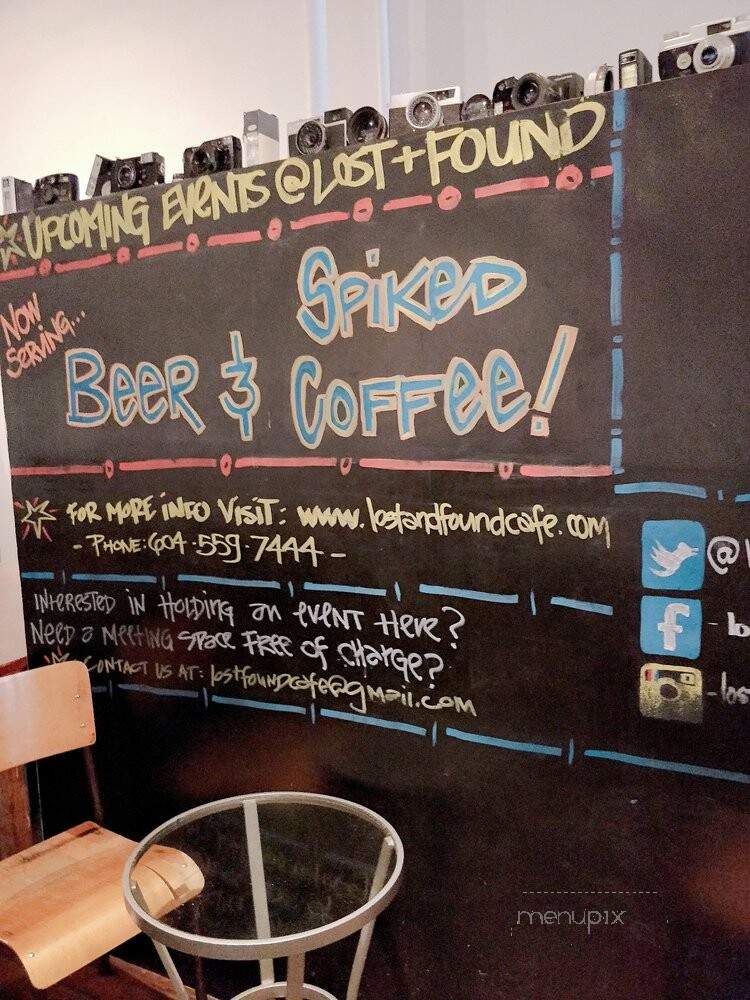 UPCOMING EVENTS @ LOST + FOUND
NOW
SERVING...
SPIKED
BEER & COFFEE!
FOR MORE INFO VISIT: www.lostandfoundcafe.com
- PHONE: 604-559-7444 -
INTERESTED IN HOLDING an EVENT HERE?
NEED a MEETING SPACE FREE OF CHARGE?
CONTACT US AT: lostfoundcafe@gmail.com
menupix